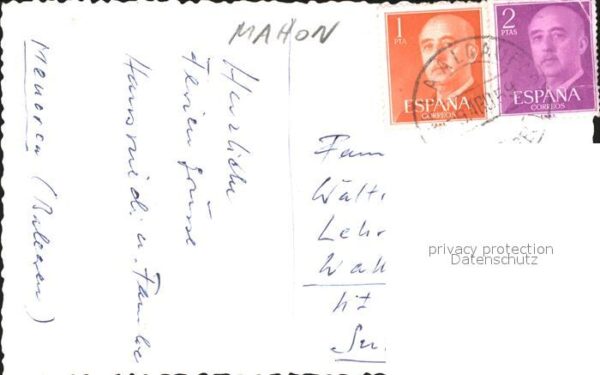 MAHON
1
PTA
ESPAÑA
CORREOS
2
PTAS
ESPAÑA
CORREOS
Menorca (Balearen)
Herzliche
Ferien Grüsse
Hansruedi u. Familie
Fam
Lehr
Wal
privacy protection
Datenschutz